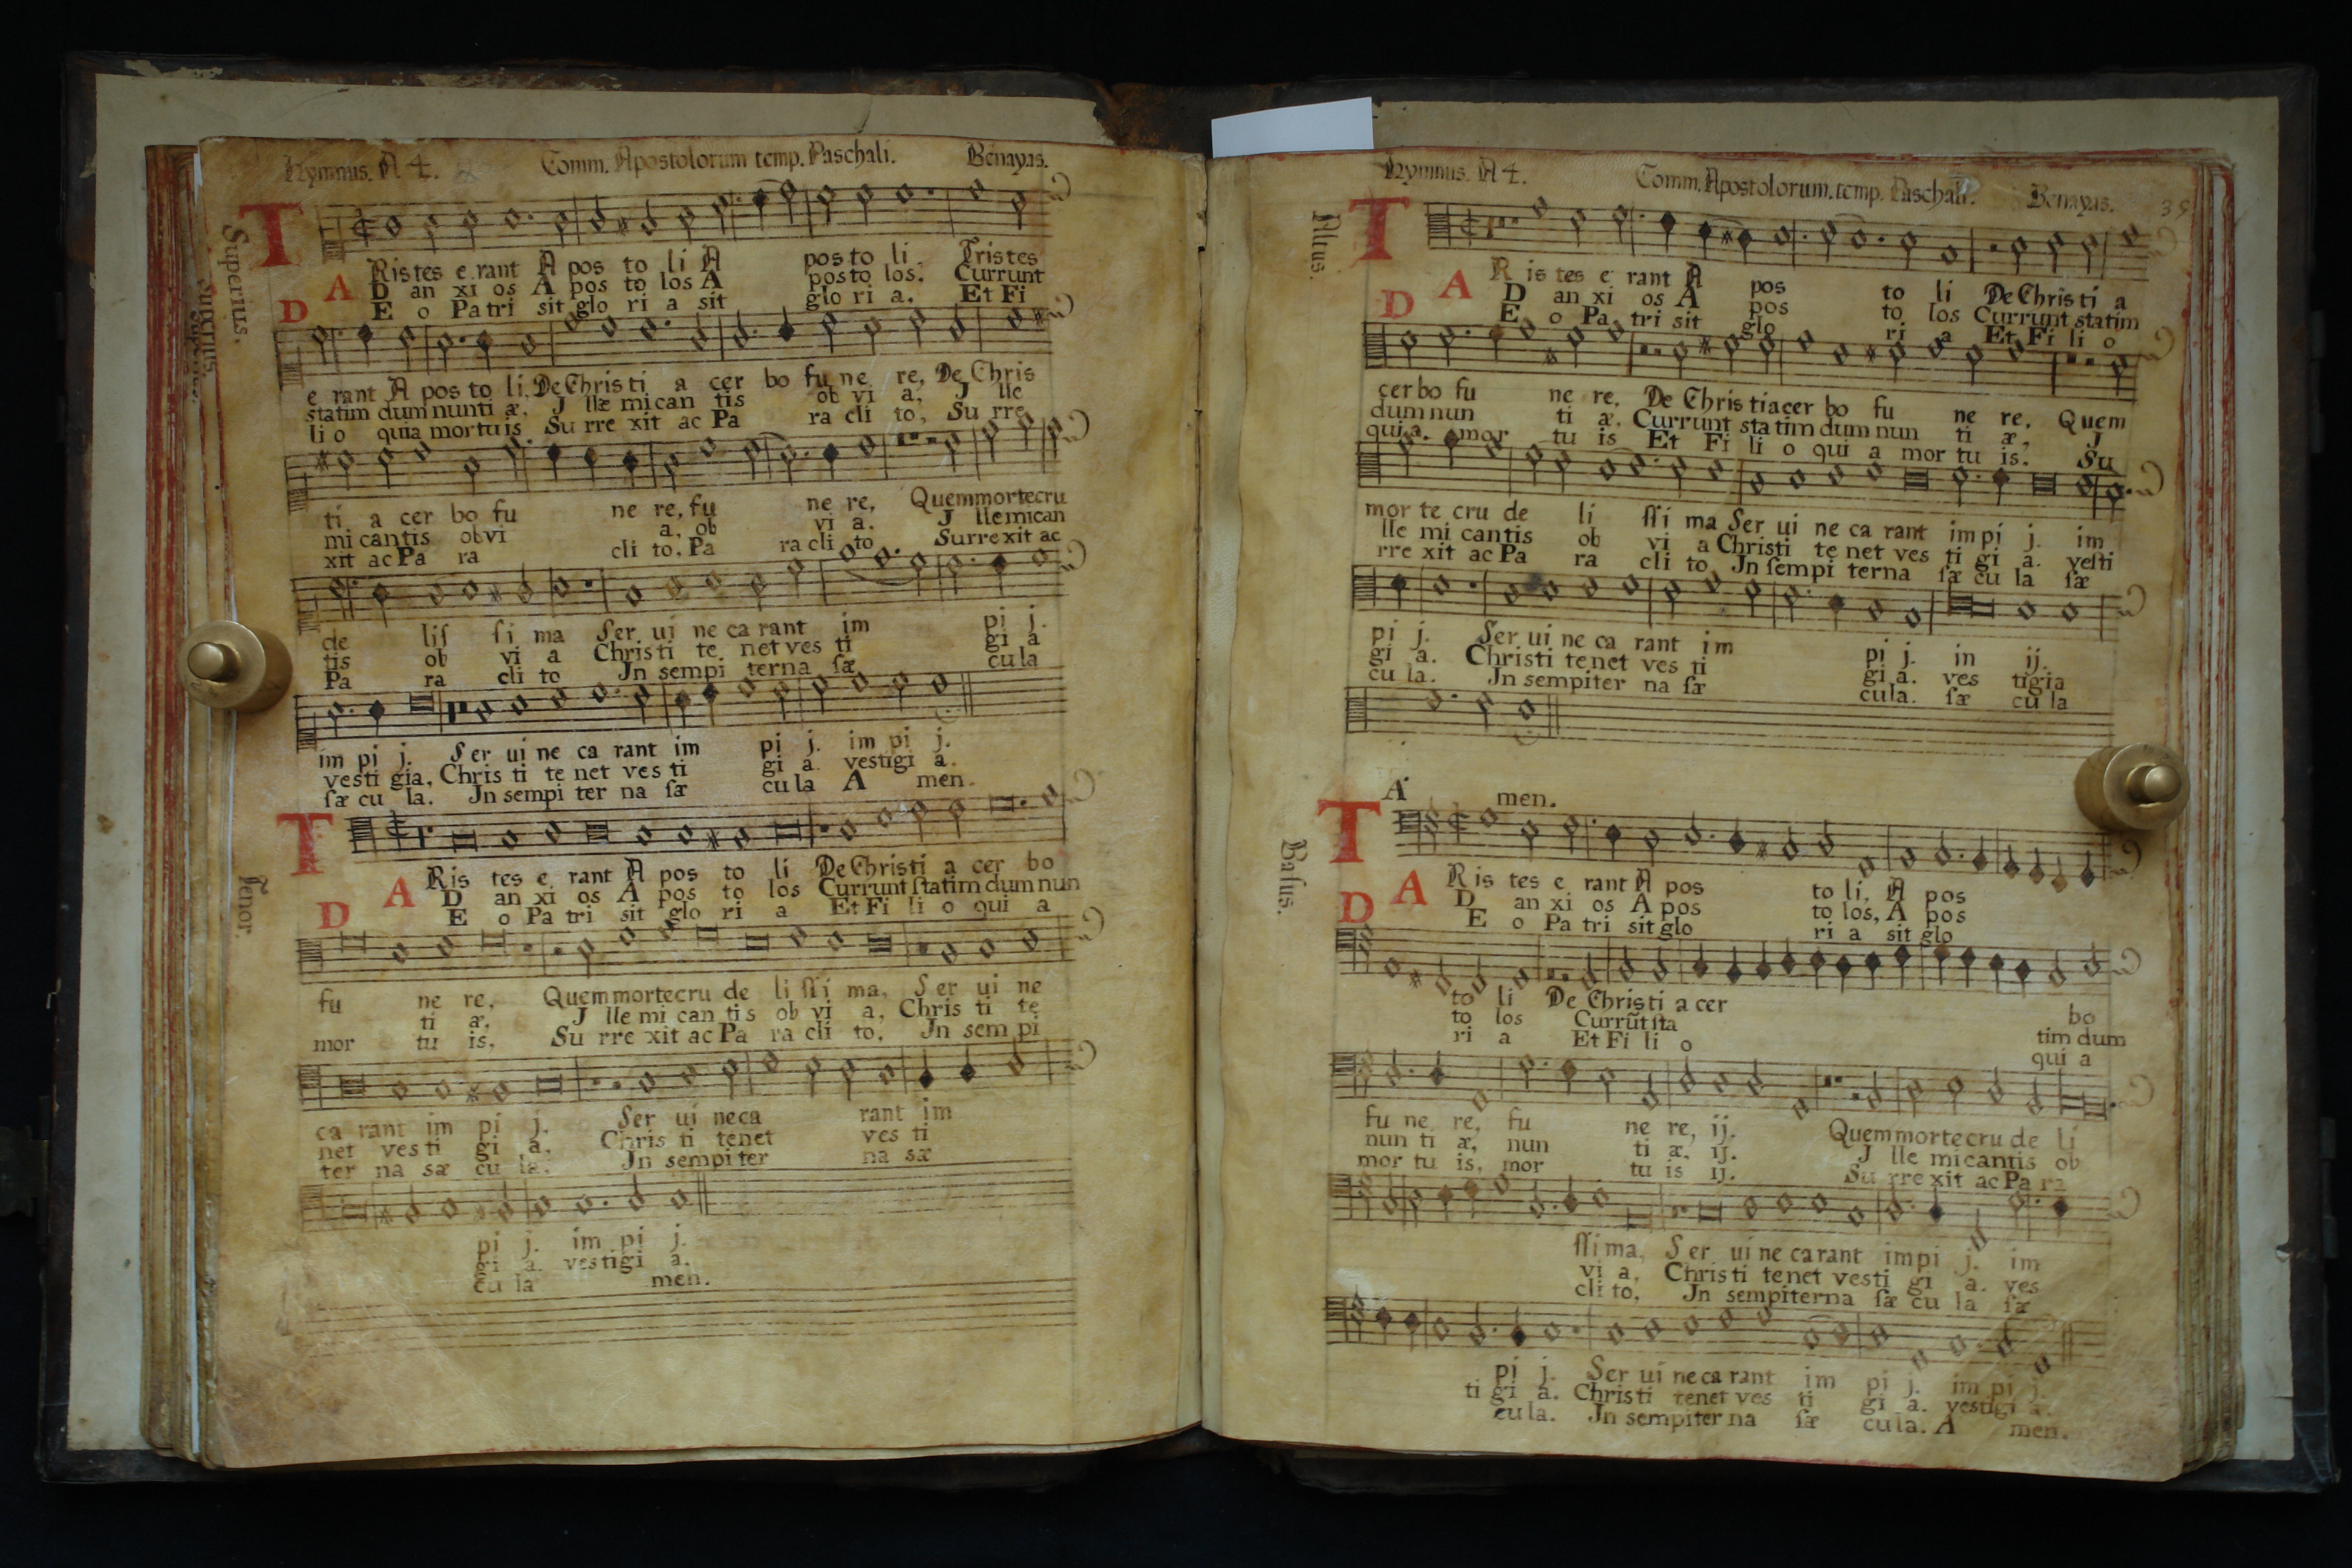 Hymnus. A 4. Comm. Apostolorum temp. Paschali. Benayas.
Superius.
T Ris tes e rant A pos to li A pos to li. Tris tes
A D an xi os A pos to los A pos to los. Currunt
D E o Pa tri sit glo ri a sit glo ri a. Et Fi
e rant A pos to li. De Chris ti a cer bo fu ne re, De Chris
statim dum nunti æ, J llæ mi can tis ob vi a, J lle
li o quia mortuis Su rre xit ac Pa ra cli to, Su rre
ti a cer bo fu ne re, fu ne re, Quem morte cru
mi cantis ob vi a, ob vi a. J lle mi can
xit ac Pa ra cli to, Pa ra cli to Surre xit ac
de liſ ſi ma Ser ui ne ca rant im pi j.
tis ob vi a Chris ti te net ves ti gi a
Pa ra cli to Jn sempi terna ſæ cu la
im pi j. Ser ui ne ca rant im pi j. im pi j.
vesti gia, Chris ti te net ves ti gi a. vestigi a.
ſæ cu la. Jn sempi ter na ſæ cu la A men.
Tenor.
T Ris tes e rant A pos to li De Chris ti a cer bo
A D an xi os A pos to los Currunt ſtatim dum nun
D E o Pa tri sit glo ri a Et Fi li o qui a
fu ne re, Quem morte cru de li ſſi ma, Ser ui ne
ti æ, J lle mi can tis ob vi a, Chris ti te
mor tu is, Su rre xit ac Pa ra cli to, Jn sem pi
ca rant im pi j. Ser ui ne ca rant im
net ves ti gi a. Chris ti tenet ves ti
ter na sæ cu la. Jn sempi ter na sæ
pi j. im pi j.
gi a. vestigi a.
cu la men.
Hymnus. A 4. Comm. Apostolorum. temp. Paschali. Benayas. 39
Altus.
T R is tes e rant A pos to li De Chris ti a
A D an xi os A pos to los Currunt statim
D E o Pa tri sit glo ri a Et Fi li o
cer bo fu ne re. De Chris ti a cer bo fu ne re. Quem
dum nun ti æ. Currunt sta tim dum nun ti æ, J
qui a mor tu is Et Fi li o qui a mor tu is. Su
mor te cru de li ſſi ma Ser ui ne ca rant im pi j. im
lle mi cantis ob vi a Christi te net ves ti gi a. veſti
rre xit ac Pa ra cli to Jn ſempi terna ſæ cu la ſæ
pi j. Ser ui ne ca rant im pi j. in ij.
gi a. Christi te net ves ti gi a. ves tigia
cu la. Jn sempiter na ſæ cula. ſæ cu la
A men.
Basus.
T R is tes e rant A pos to li, A pos
A D an xi os A pos to los, A pos
D E o Pa tri sit glo ri a sit glo
to li De Chris ti a cer bo
to los Currũt sta tim dum
ri a Et Fi li o qui a
fu ne re, fu ne re, ij. Quem morte cru de li
nun ti æ, nun ti æ. ij. J lle mi cantis ob
mor tu is, mor tu is ij. Su rre xit ac Pa ra
ſſi ma, Ser ui ne ca rant im pi j. im
vi a, Chris ti te net vesti gi a. ves
cli to, Jn sempiterna ſæ cu la ſæ
pi j. Ser ui ne ca rant im pi j. im pi j.
ti gi a. Chris ti tenet ves ti gi a. vestigi a.
cu la. Jn sempiter na ſæ cu la. A men.